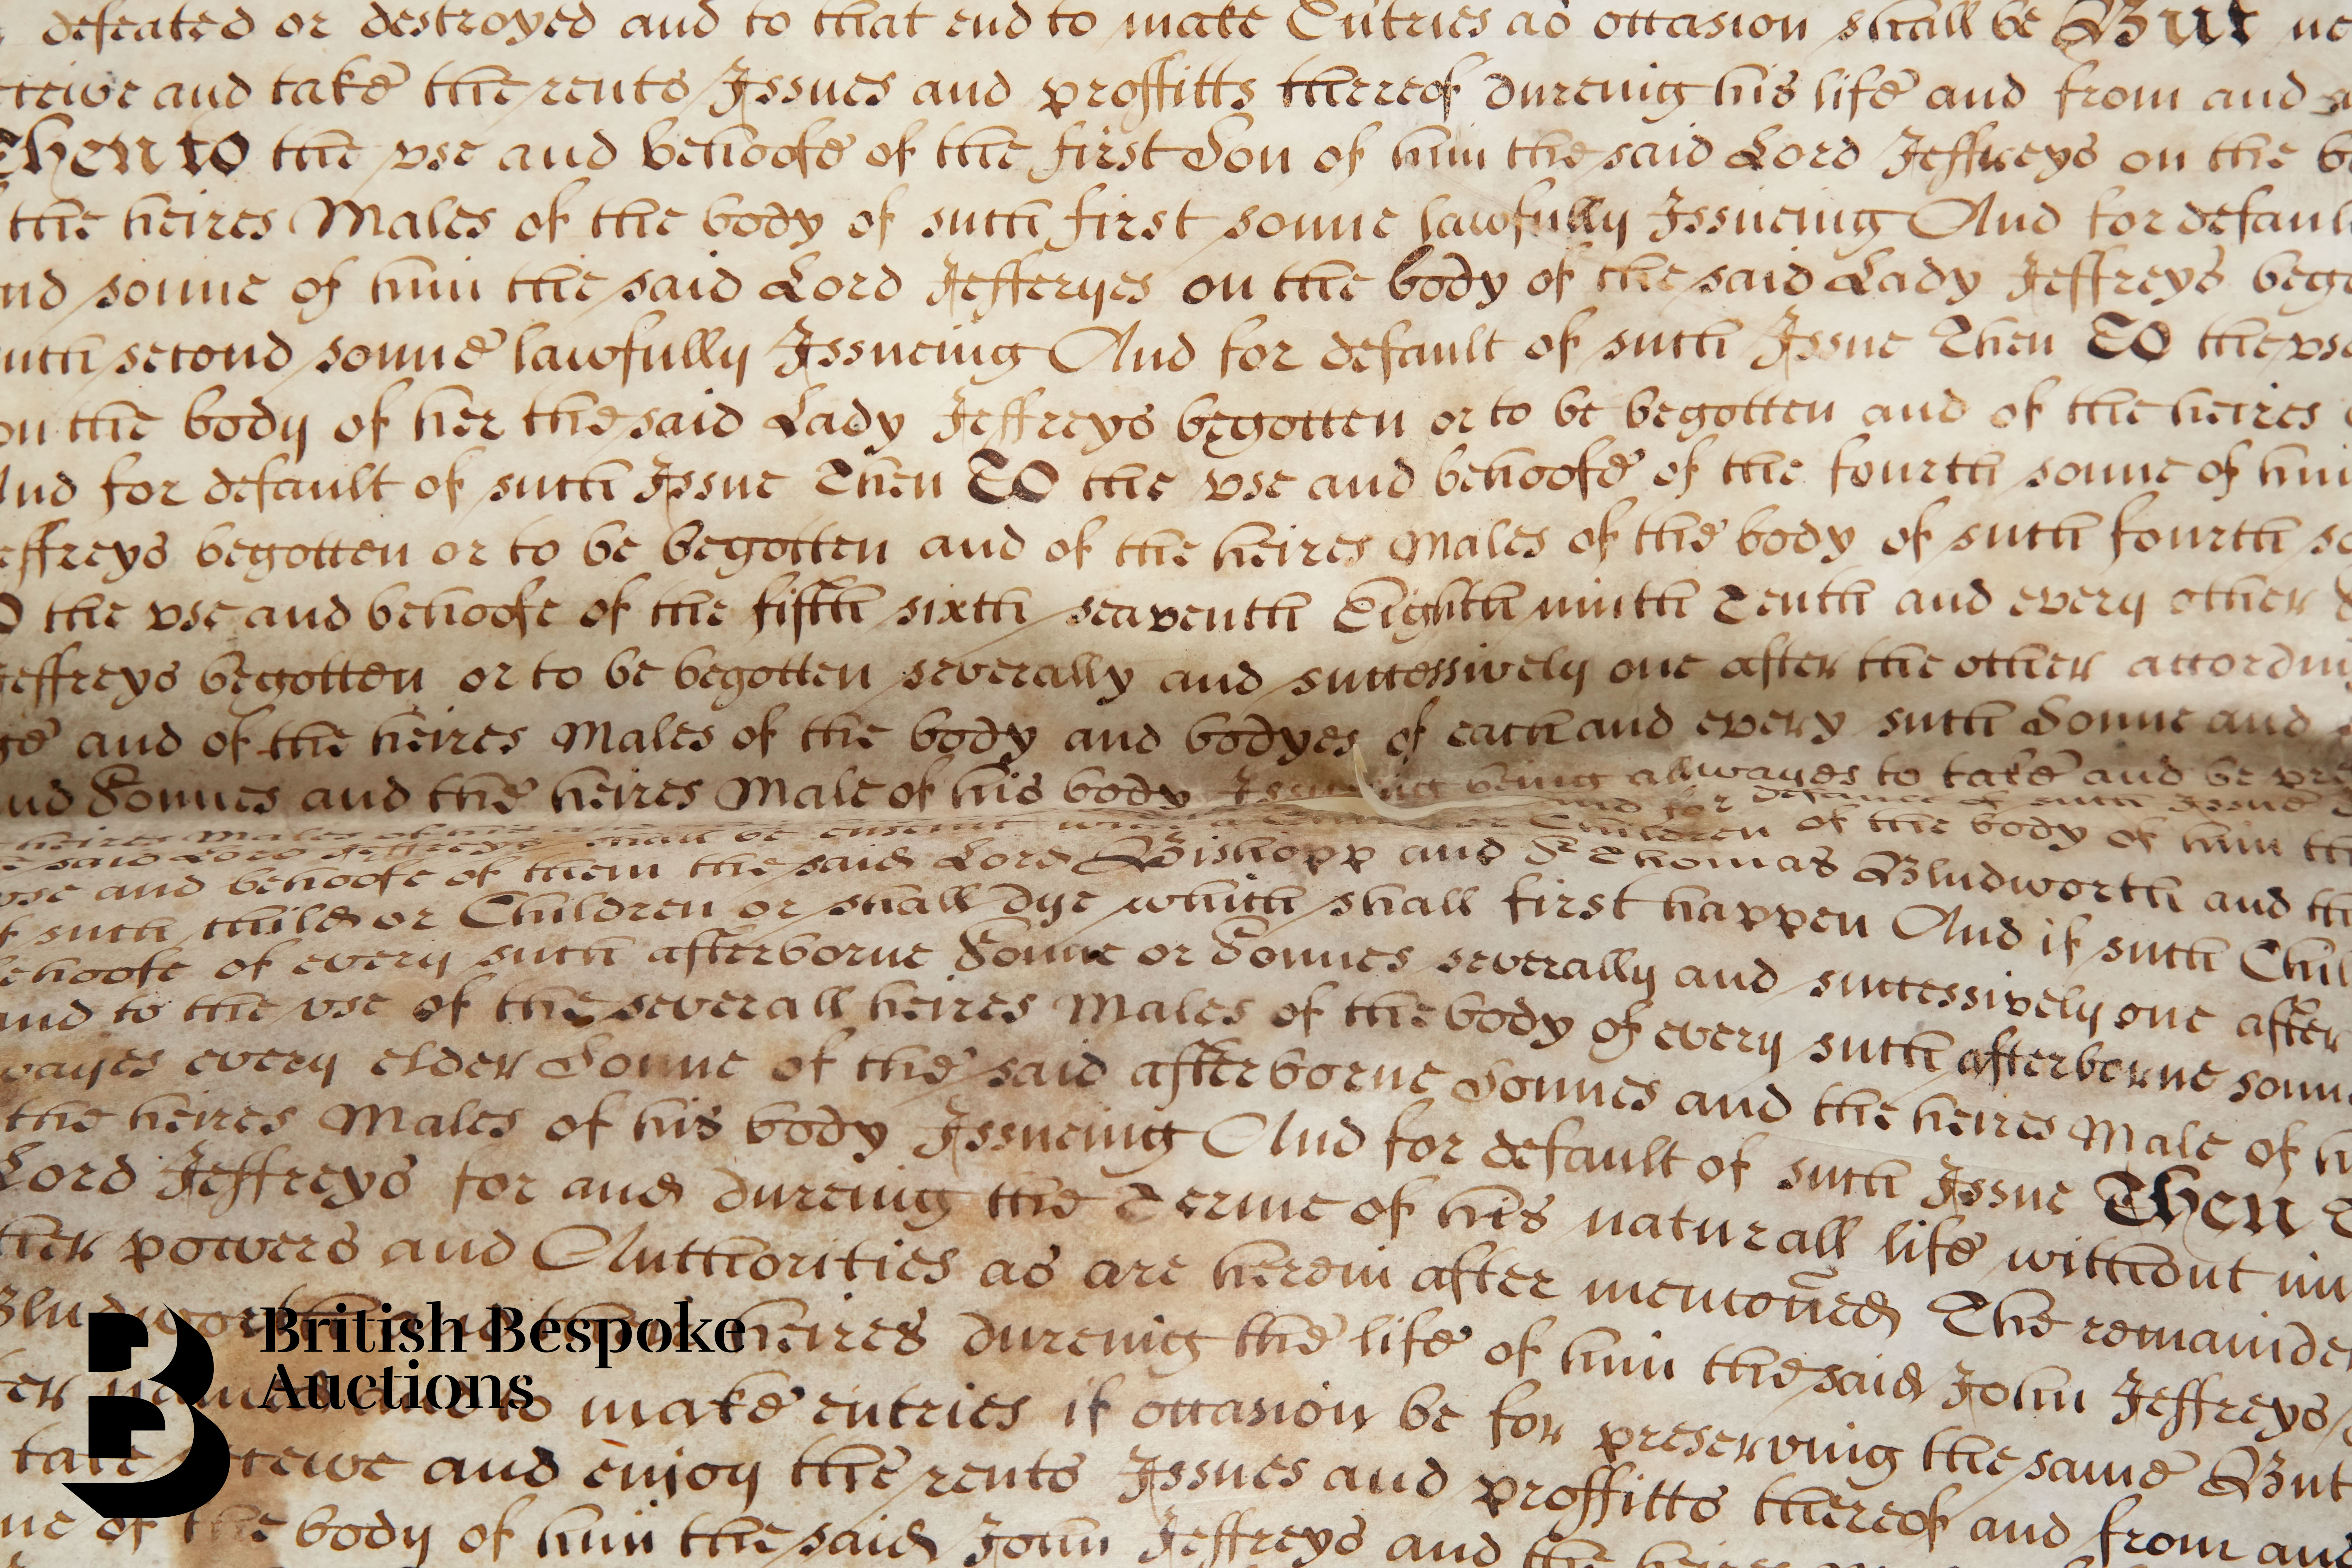 defeated or destroyed and to that end to make Entries as occasion shall be But
and take the rents Issues and proffitts thereof dureing his life and from and
Then to the vse and behoofe of the first Son of him the said Lord Jeffreys on the
the heires Males of the body of such first sonne lawfully Issueing And for default
sonne of him the said Lord Jefferyes on the body of the said Lady Jeffreys
such second sonne lawfully Issueing And for default of such Issue Then TO the vse
on the body of her the said Lady Jeffreys begotten or to be begotten and of the heires
And for default of such Issue Then TO the vse and behoofe of the fourth sonne of him
Jeffreys begotten or to be begotten and of the heires Males of the body of such fourth
the vse and behoofe of the fifth sixth seaventh Eighth ninth Tenth and every other
Jeffreys begotten or to be begotten severally and successively one after the other
and of the heires Males of the body and bodyes of each and every such Sonne and
and Sonnes and the heires Male of his body Issueing being allwayes to take and be
heires Males of and for of such Issue
said Lord Jeffreys shall be or Children of the body of him the
vse and behoofe of them the said Lord Bishopp and Sr Thomas Bludworth and
of such child or Children or shall dye which shall first happen And if such
behoofe of every such afterborne Sonne or Sonnes severally and successively one after
and to the vse of the severall heires Males of the body of every such afterborne
every elder Sonne of the said afterborne Sonnes and the heires Male of
the heires Males of his body Issueing And for default of such Issue Then
Lord Jeffreys for and dureing the Terme of his naturall life without
powers and Authorities as are herein after mencõned The
Bludworth heires dureing the life of him the said John Jeffreys
to make entries if occasion be for preserving the same But
take and enjoy the rents Issues and proffitts thereof and from
of the body of him the said John Jeffreys and the heires
British Bespoke
Auctions